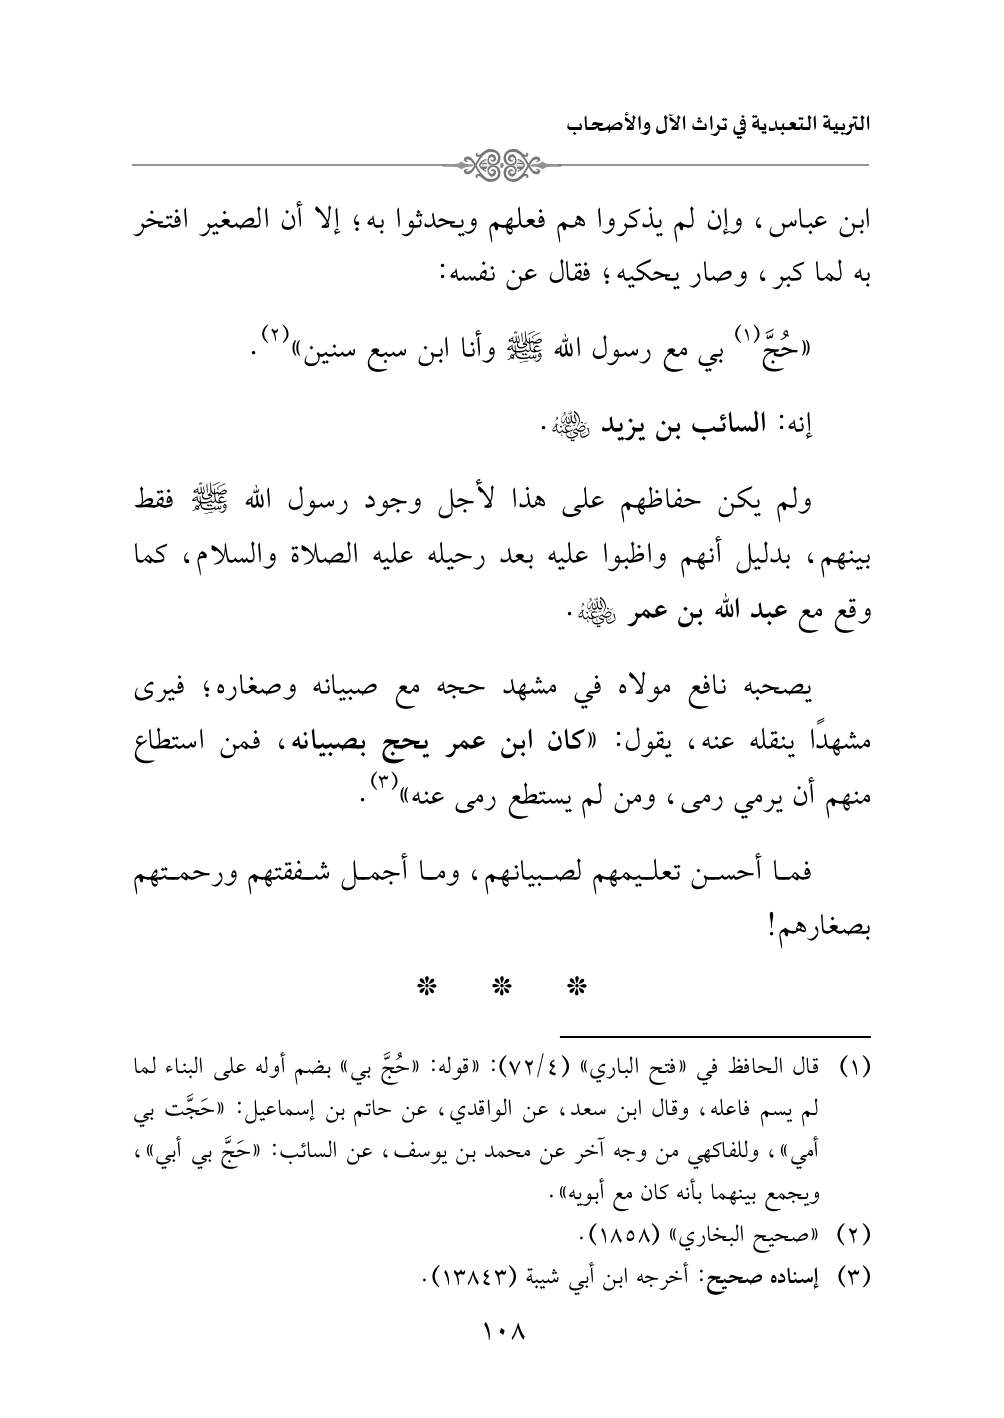 التربية التعبدية في تراث الآل والأصحاب
ابن عباس، وإن لم يذكروا هم فعلهم ويحدثوا به؛ إلا أن الصغير افتخر
به لما كبر، وصار يحكيه؛ فقال عن نفسه:
«حُجَّ(١) بي مع رسول الله ﷺ وأنا ابن سبع سنين»(٢).
إنه: السائب بن يزيد رضي الله عنه.
ولم يكن حفاظهم على هذا لأجل وجود رسول الله ﷺ فقط
بينهم، بدليل أنهم واظبوا عليه بعد رحيله عليه الصلاة والسلام، كما
وقع مع عبد الله بن عمر رضي الله عنه.
يصحبه نافع مولاه في مشهد حجه مع صبيانه وصغاره؛ فيرى
مشهدًا ينقله عنه، يقول: «كان ابن عمر يحج بصبيانه، فمن استطاع
منهم أن يرمي رمى، ومن لم يستطع رمى عنه»(٣).
فمـا أحسـن تعلـيمهم لصـبيانهم، ومـا أجمـل شـفقتهم ورحمـتهم
بصغارهم!
❊ ❊ ❊
(١) قال الحافظ في «فتح الباري» (٧٢/٤): «قوله: «حُجَّ بي» بضم أوله على البناء لما
لم يسم فاعله، وقال ابن سعد، عن الواقدي، عن حاتم بن إسماعيل: «حَجَّت بي
أمي»، وللفاكهي من وجه آخر عن محمد بن يوسف، عن السائب: «حَجَّ بي أبي»،
ويجمع بينهما بأنه كان مع أبويه».
(٢) «صحيح البخاري» (١٨٥٨).
(٣) إسناده صحيح: أخرجه ابن أبي شيبة (١٣٨٤٣).
١٠٨